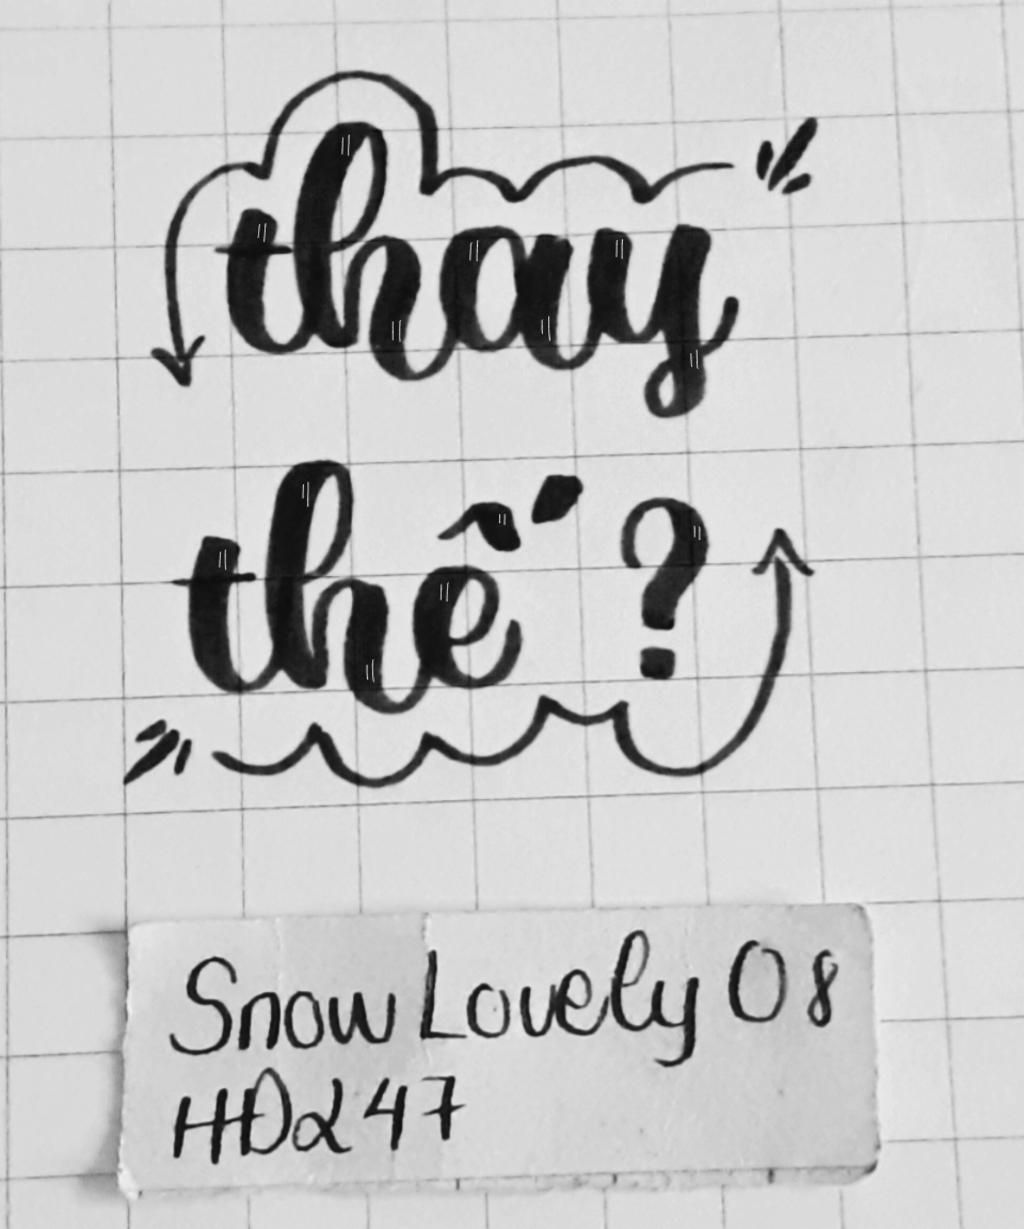 thay
thế ?
Snow Lovely 08
HD247